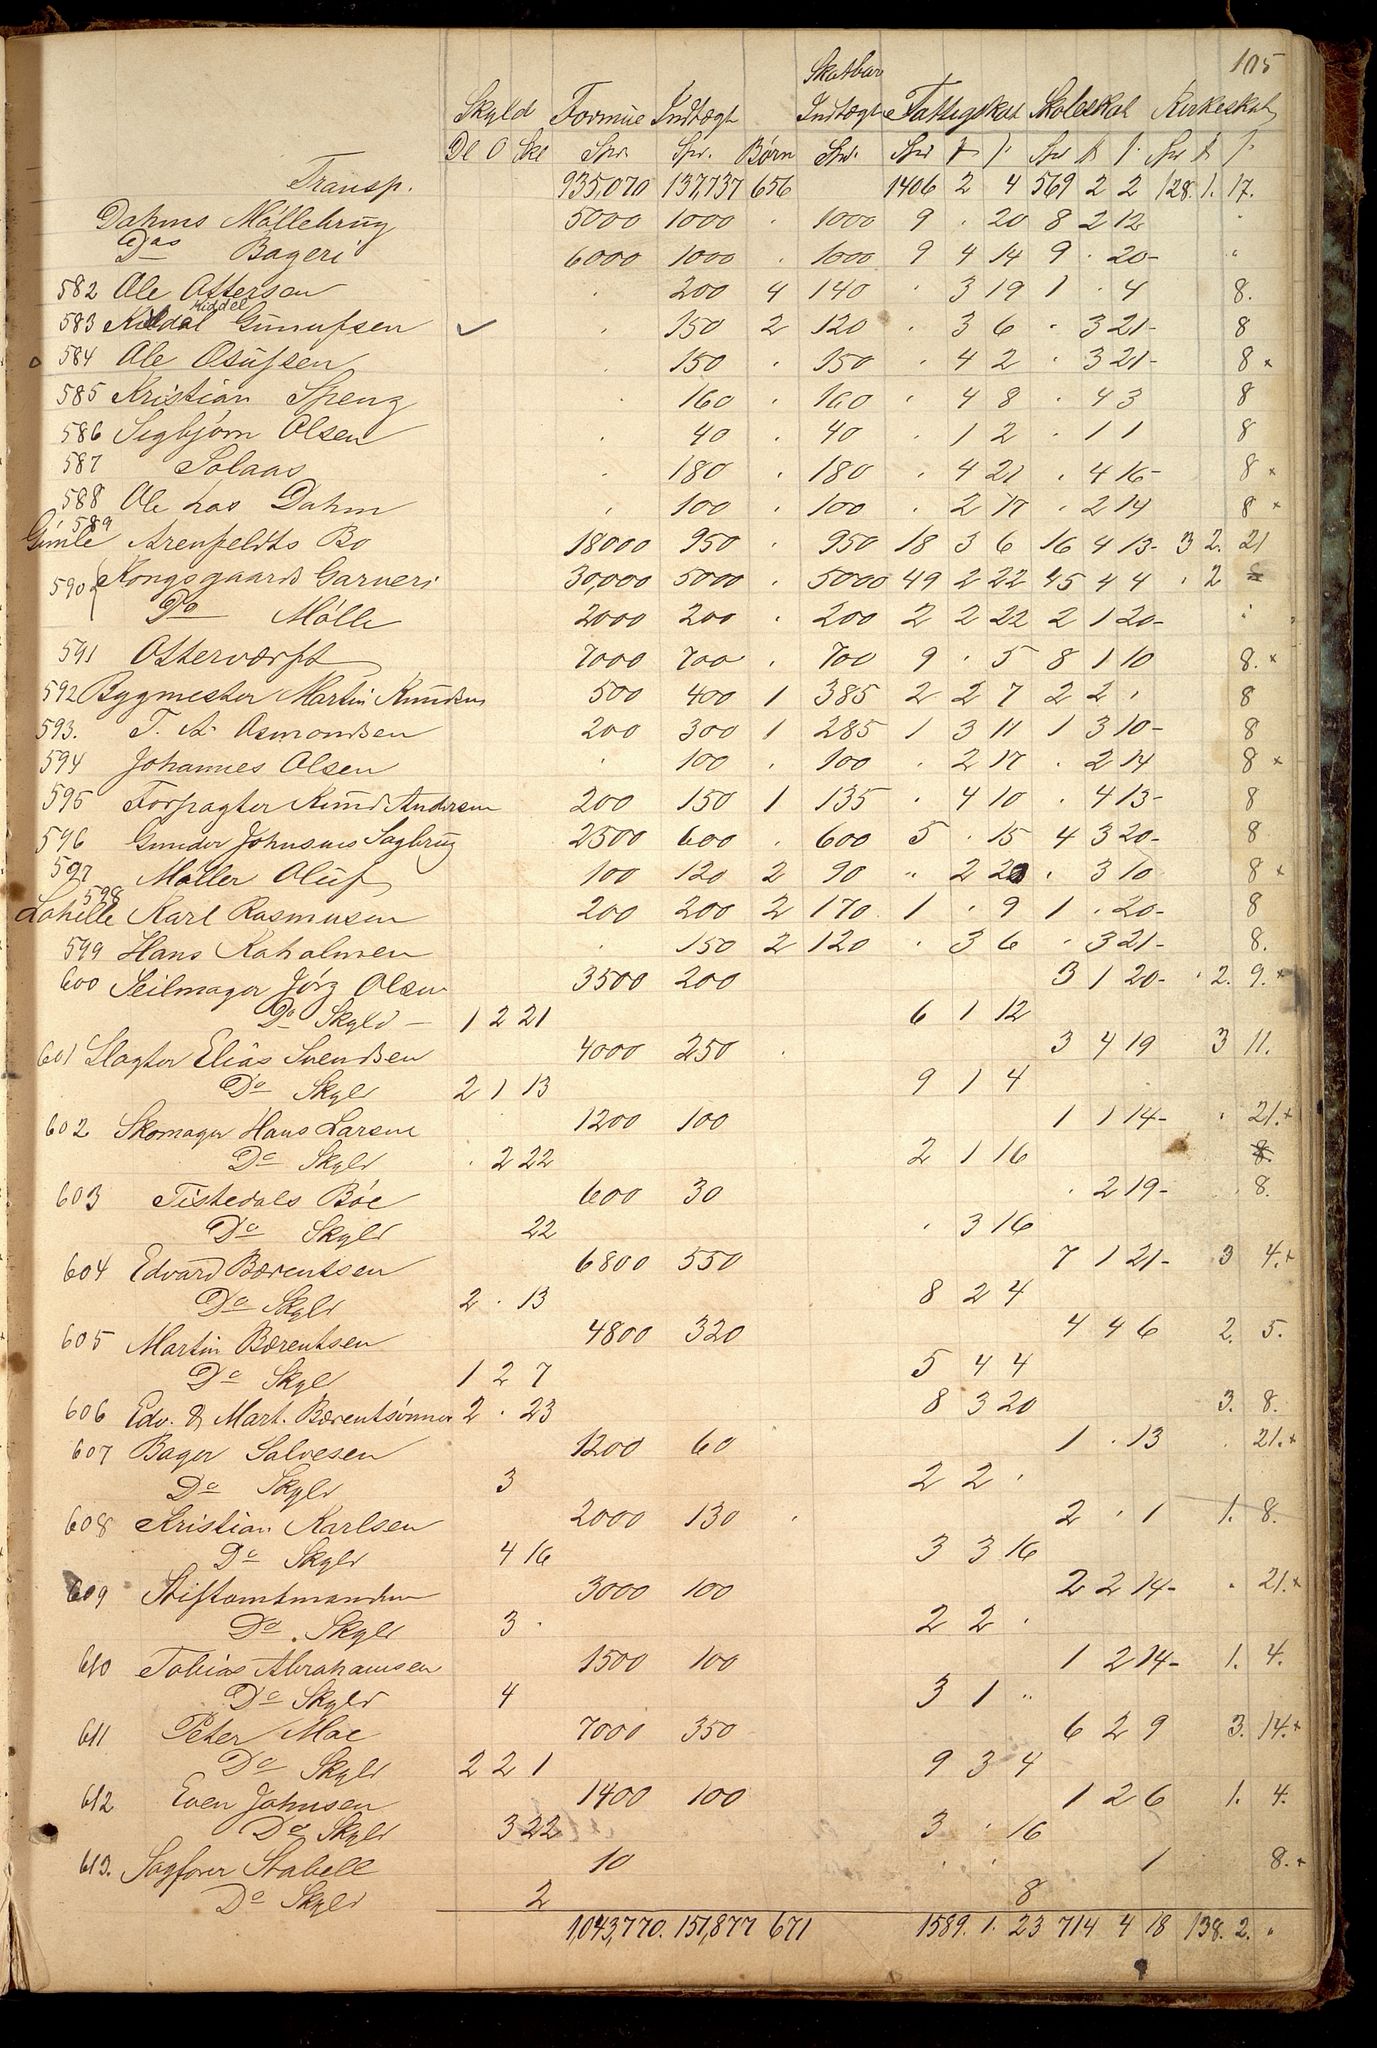 105
Skatbar
Skyld Formue Indtægt Indtægt Fattigskat Skoleskat Kirkeskat
Dl O Skl Spr. Spr. Børn Spr.
Transp. 935,070 137,737 656 1406 2 4 569 2 2 128. 1. 17.
Dahms Möllebrug 5000 1000 . 1000 9 . 20 8 2 12 "
Dos Bageri 6000 1000 . 1000 9 4 14 9 . 20- "
582 Ole Ottersen . 200 4 140 . 3 19 1 . 4 8.
Riddel
583 Gunufsen ✓ . 150 2 120 . 3 6 . 3 21- 8
o 584 Ole Osufsen . 150 . 150 . 4 2 . 3 21- 8 x
585 Kristian Speng . 160 . 160 . 4 8 . 4 3 8
586 Sigbjørn Olsen . 40 . 40 . 1 2 . 1 1 8
587 Solaas . 180 . 180 . 4 21 . 4 16- 8 x
588 Ole hos Dahm . 100 . 100 . 2 17 . 2 14 8 x
589
Gimle Arenfeldts Bo 18000 950 . 950 18 3 6 16 4 13- 3 2. 21
590 Kongsgaard Garveri 30,000 5000 . 5000 49 2 22 45 4 4 . 2
Do Mölle 2000 200 . 200 2 2 22 2 1 20- "
591 Otterværft 7000 700 . 700 9 . 5 8 1 10 8. x
592 Bygmester Martin Knudsen 500 400 1 385 2 2 7 2 2 . 8
593. T. A. Osmondsen 200 300 1 285 1 3 11 1 3 10- 8
594 Johannes Olsen . 100 . 100 . 2 17 . 2 14 8 x
595 Forpagter Knud Andersen 200 150 1 135 . 4 10 . 4 13- 8
596 Gunder Johnsens Sagbrug 2500 600 . 600 5 . 15 4 3 20- 8
597 Möller Oluf 100 120 2 90 " 2 20 . 3 10 8 x
598
Lahelle Karl Rasmusen 200 200 2 170 1 . 9 1 . 20- 8
599 Hans Kaholmen . 150 2 120 . 3 6 . 3 21- 8.
600 Seilmager Jörg Olsen 3500 200 3 1 20- . 2. 9. x
Do Skyld - 1 2 21 6 1 12
601 Slagter Elias Svendsen 4000 250 . 3 4 19 3 11.
Do Skyld 2 1 13 9 1 4
602 Skomager Hans Larsen 1200 100 1 1 14- . 21. x
Do Skyld . 2 22 2 1 16 8.
603 Tistedals Böe 600 30 . 2 19- . 8.
Do Skyld 22 . 3 16
604 Edvard Bærentsen 6800 550 7 1 21- 3 4. x
Do Skyld 2 . 13 8 2 4
605 Martin Bærentsen 4800 320 4 4 6 2. 5.
Do Skyl 1 2 7 5 4 4
606 Edv. & Mart. Bærentsönner 2 . 23 8 3 20 3. 8.
607 Bager Salvesen 1200 60 1 . 13 . 21. x
Do Skyld 3 2 2 .
608 Kristian Karlsen 2000 130 . 2 . 1 1. 8.
Do Skyld 4 16 3 3 16
609 Stiftamtmanden 3000 100 2 2 14- . 21. x
Do Skyld 3 . 2 2 .
610 Tobias Abrahamsen 1500 100 1 2 14- 1. 4.
Do Skyld 4 3 1 "
611 Peter Moe 7000 350 6 2 9 3. 14. x
Do Skyld 2 2 1 9 3 4
612 Even Johnsen 1400 100 1 2 6 1. 4.
Do Skyld 3 22 3 . 16
613. Sagfører Stabell 10 . . 1 8. x
Do Skyld 2 8
1,043,770. 151,877 671 1589. 1. 23 714 4 18 138. 2. "